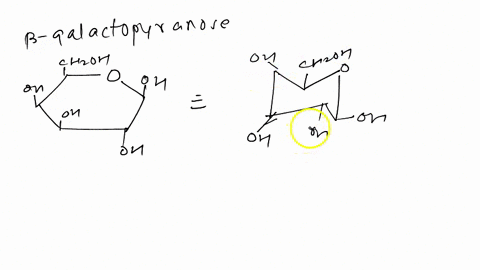 β-galactopyranose
CH2OH
O
OH
OH
OH
OH
≡
OH
CH2OH
O
OH
OH